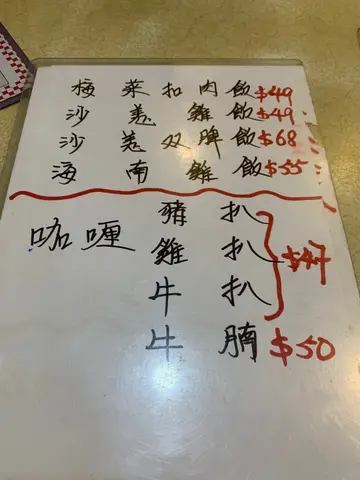 梅菜扣肉飯$49
沙羌雞飯$49
沙羌双脾飯$68
海南雞飯$55
咖喱 豬扒
雞扒 $47
牛扒
牛腩 $50